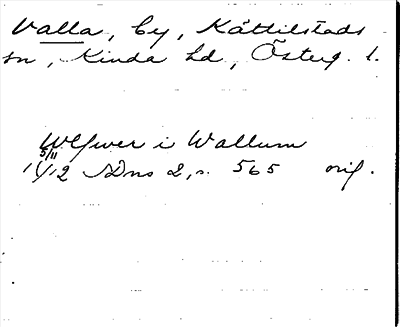 Valla, by, Kättilstads
sn, Kinda hd, Österg. l.
Wlfwer i Wallum
5/11 1412 SDns 2, s. 565 orig.